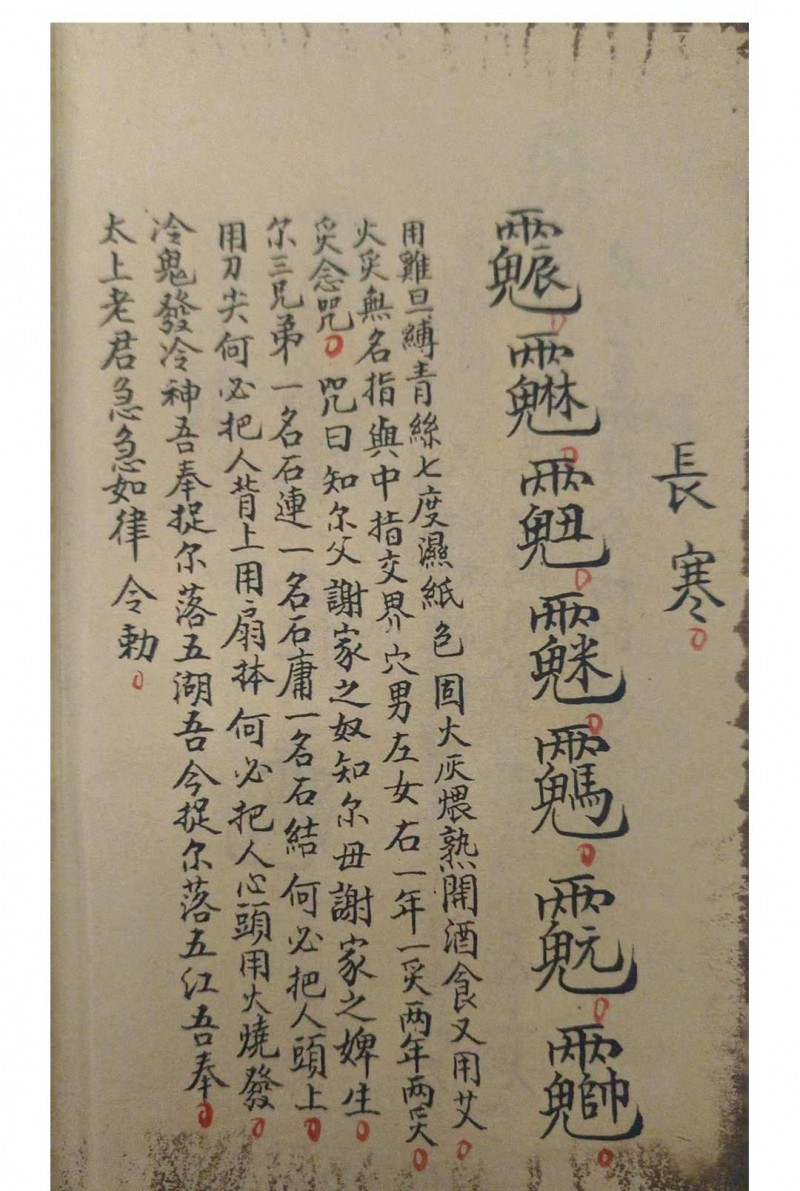 長寒
用雞旦縛青絲七度濕紙色固火灰煨熟開酒食又用艾
火炙無名指與中指交界穴男左女右一年一炙两年两炙
炙念咒 咒曰知尔父謝家之奴知尔母謝家之婢生
尔三兄弟一名石連一名石庸一名石結何必把人頭上
用刀尖何必把人背上用扇抹何必把人心頭用火燒發
冷鬼發冷神吾奉捉尔落五湖吾今捉尔落五江吾奉
太上老君急急如律令勅